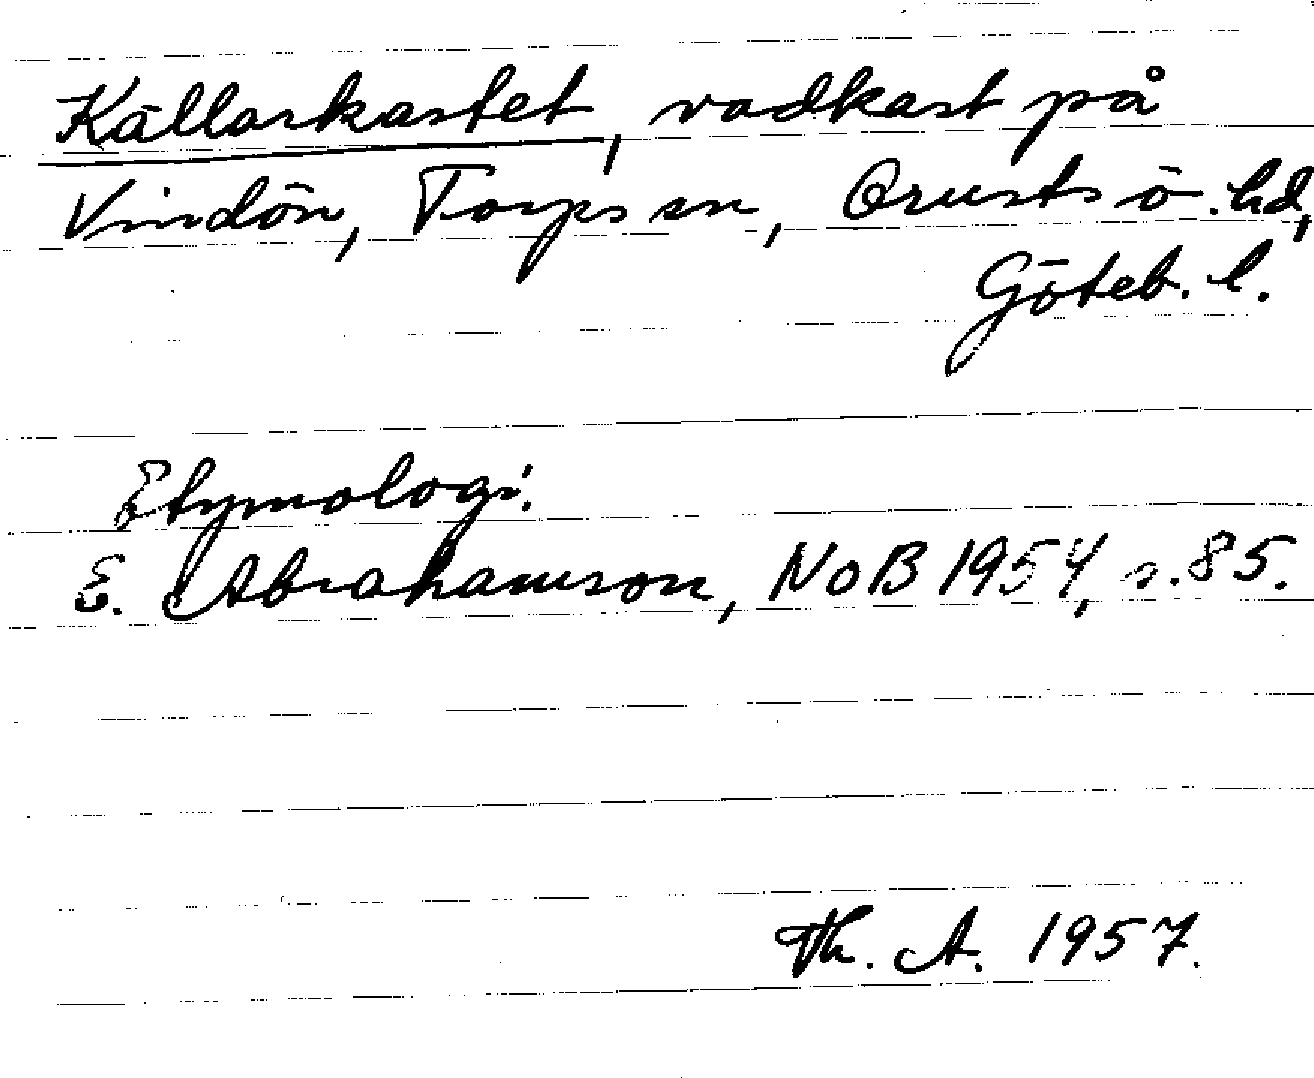 Källarkastet, vadkast på
Vindön, Torps sn, Orusts ö. hd,
Göteb. l.
Etymologi.
E. Abrahamson, NoB 1954, s. 85.
Th. A. 1957.